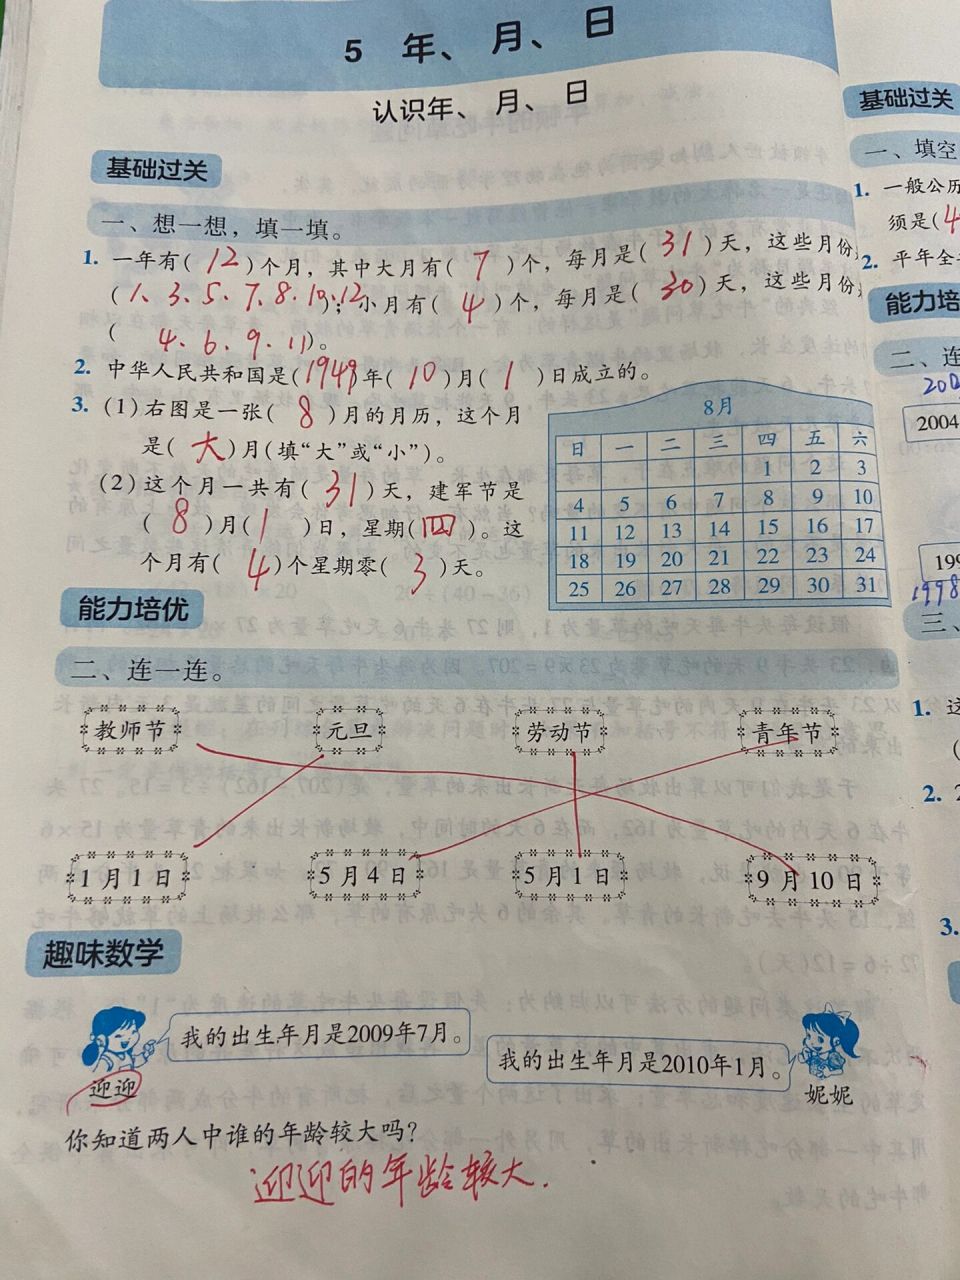 5 年、月、日
认识年、月、日
基础过关
一、想一想，填一填。
1. 一年有(12)个月，其中大月有(7)个，每月是(31)天，这些月份是
(1、3、5、7、8、10、12)；小月有(4)个，每月是(30)天，这些月份是
(4、6、9、11)。
2. 中华人民共和国是(1949)年(10)月(1)日成立的。
3. (1)右图是一张(8)月的月历，这个月
是(大)月(填“大”或“小”)。
(2)这个月一共有(31)天，建军节是
(8)月(1)日，星期(四)。这
个月有(4)个星期零(3)天。
8月
日 一 二 三 四 五 六
1 2 3
4 5 6 7 8 9 10
11 12 13 14 15 16 17
18 19 20 21 22 23 24
25 26 27 28 29 30 31
能力培优
二、连一连。
教师节 元旦 劳动节 青年节
1月1日 5月4日 5月1日 9月10日
趣味数学
我的出生年月是2009年7月。
我的出生年月是2010年1月。
迎迎
妮妮
你知道两人中谁的年龄较大吗？
迎迎的年龄较大.
基础过关
一、填空
1. 一般公历
须是(4
2. 平年全
能力培
二、连
200
2004
199
1998
三、
1. 这
(
2. 2
3.